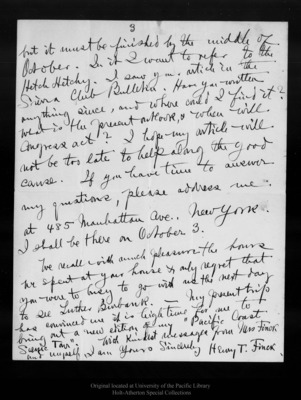 3
but it must be finished by the middle of
October. In it I want to refer to the
Hetch Hetchy. I saw your article in the
Sierra Club Bulletin. Have you written
anything since, and where could I find it?
What is the present outlook, & when will
Congress act? I hope my article will
not be too late to help along the good
cause. If you have time to answer
my questions, please address me
at 485 Manhattan Ave. New York.
I shall be there on October 3.
We recall with much pleasure the hours
we spent at your house & only regret that
you were to busy to go with us the next day
to see Luther Burbank. My present trip
has convinced me it is high time for me to
bring out a new edition of my "Pacific Coast
Scenic Tour". With kindest messages from Mrs Finck
and myself I am Yours Sincerely Henry T. Finck.
Original located at University of the Pacific Library
Holt-Atherton Special Collections